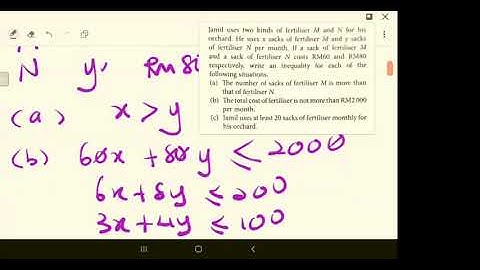 Jamil uses two kinds of fertiliser M and N for his
orchard. He uses x sacks of fertiliser M and y sacks
of fertiliser N per month. If a sack of fertiliser M
and a sack of fertiliser N costs RM60 and RM80
respectively, write an inequality for each of the
following situations.
(a) The number of sacks of fertiliser M is more than
that of fertiliser N.
(b) The total cost of fertiliser is not more than RM2 000
per month.
(c) Jamil uses at least 20 sacks of fertiliser monthly for
his orchard.
N y,
(a) x > y
(b) 60x + 80y ≤ 2000
6x + 8y ≤ 200
3x + 4y ≤ 100